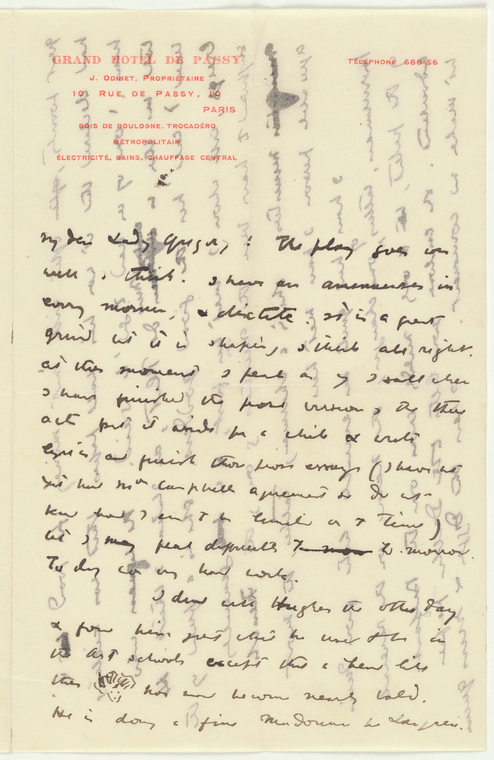 GRAND HOTEL DE PASSY
TÉLÉPHONE 686-56
J. ODINET, PROPRIETAIRE
10, RUE DE PASSY, 10
PARIS
BOIS DE BOULOGNE, TROCADÉRO
MÉTROPOLITAIN
ÉLECTRICITÉ, BAINS, CHAUFFAGE CENTRAL
My dear Lady Gregory: The play goes on
well I think. I have an amanuensis in
every morning, & dictate. It is a great
grind but it is shaping, I think all right.
at this moment I feel as if I shall when
I have finished the prose version of the three
acts put it aside for a while & write
lyrics and finish those prose essays (I have not
yet had Mrs Campbells agreement so do not
know how I am to be limited as to time)
but I may feel differently to-morrow.
To day was very hard work.
I dined with Hughes the other day
& found him just what he used to be in
the art schools except that a head like
this has now become nearly bald.
He is doing a fine Madonna for Loughrea.